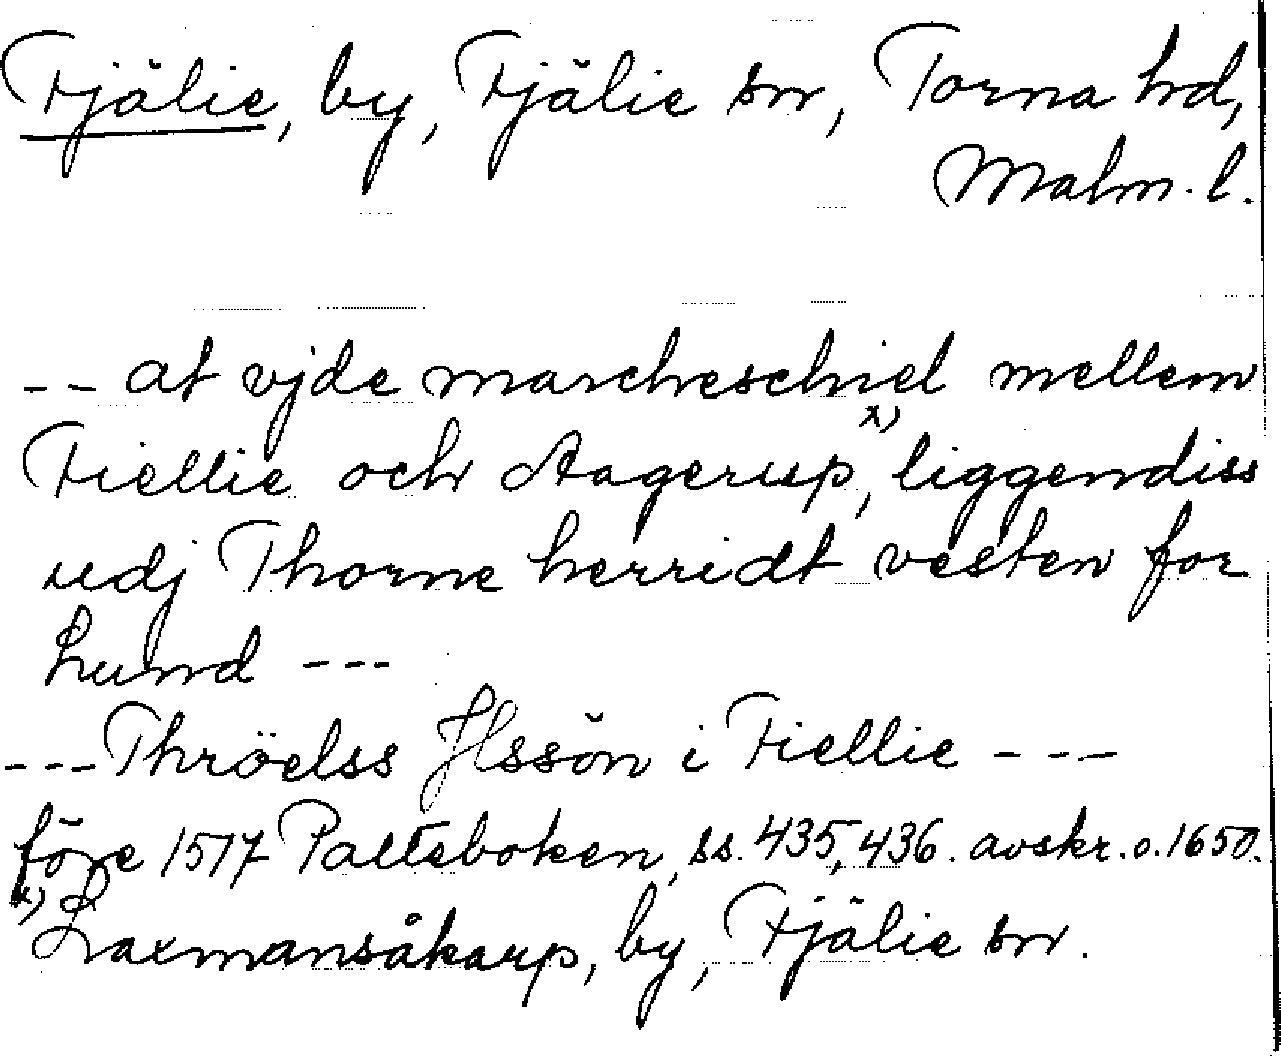 Fjälie, by, Fjälie sn, Torna hd,
Malm. l.
-- at vjde marcheschiel mellem
Fiellie och Aagerup,x) liggendiss
udj Thorne herridt vesten for
Lund ---
--- Thröelss Jlssön i Fiellie ---
före 1517 Palteboken, ss. 435, 436. avskr. o. 1650.
x) Laxmansåkarp, by, Fjälie sn.